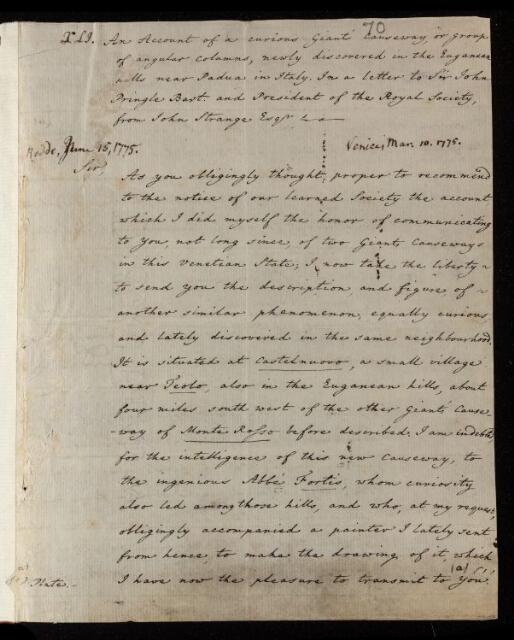 70
XLI. An Account of a curious Giants Causeway or group
of angular columns, newly discovered in the Euganean
hills near Padua in Italy. In a letter to Sir John
Pringle Bart. and President of the Royal Society,
from John Strange Esqr.
Redde, June 15, 1775.
Venice, Mar. 10. 1775.
Sir,
As you obligingly thought proper to recommend
to the notice of our learned Society the account
which I did myself the honor of communicating
to you, not long since, of two Giants Causeways
in this Venetian State; I now take the liberty
to send you the description and figure of
another similar phenomenon, equally curious
and lately discovered in the same neighbourhood.
It is situated at Castelnuovo, a small village
near Teolo, also in the Euganean hills, about
four miles south west of the other Giants Cause-
-way of Monte Rosso before described. I am indebted
for the intelligence of this new Causeway, to
the ingenious Abbé Fortis, whom curiosity
also led among those hills, and who, at my request,
obligingly accompanied a painter I lately sent
from hence, to make the drawing of it, which
I have now the pleasure to transmit to you. (a)
(a) Plate.